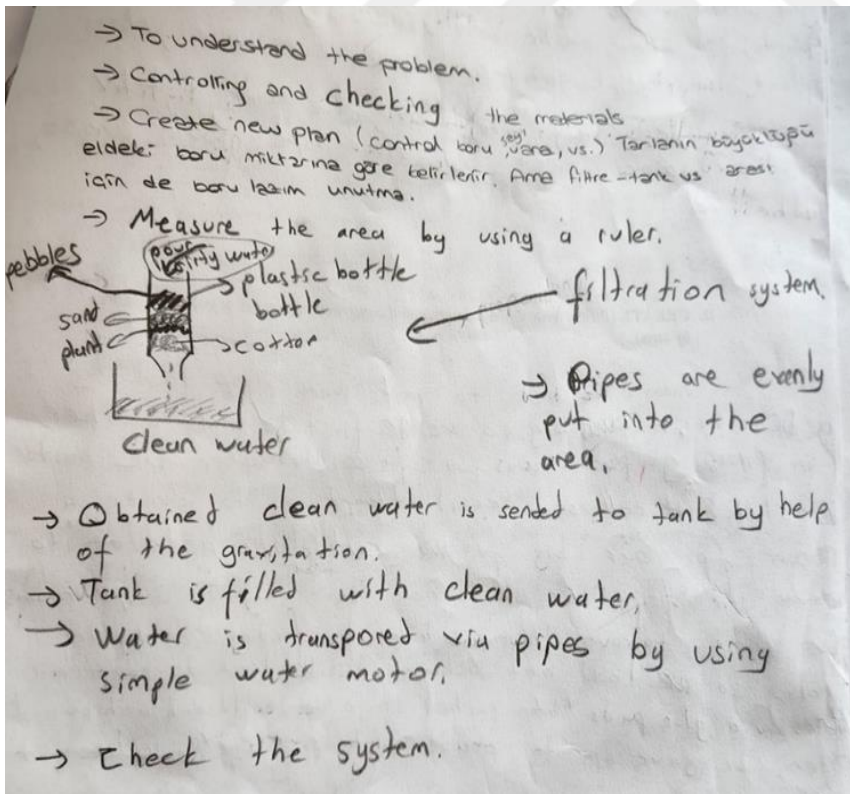 → To understand the problem.
→ Controlling and checking the materials
→ Create new plan (control boru vana, vs.) Tarlanın büyüklüğü
eldeki boru miktarına göre belirlenir. Ama filtre-tank vs arası
için de boru lazım unutma.
→ Measure the area by using a ruler.
pebbles
pour dirty water
plastic bottle
bottle
sand
plant
cotton
clean water
filtration system.
→ Pipes are evenly
put into the
area.
→ Obtained clean water is sended to tank by help
of the gravitation.
→ Tank is filled with clean water.
→ Water is transpored via pipes by using
simple water motor.
→ Check the system.